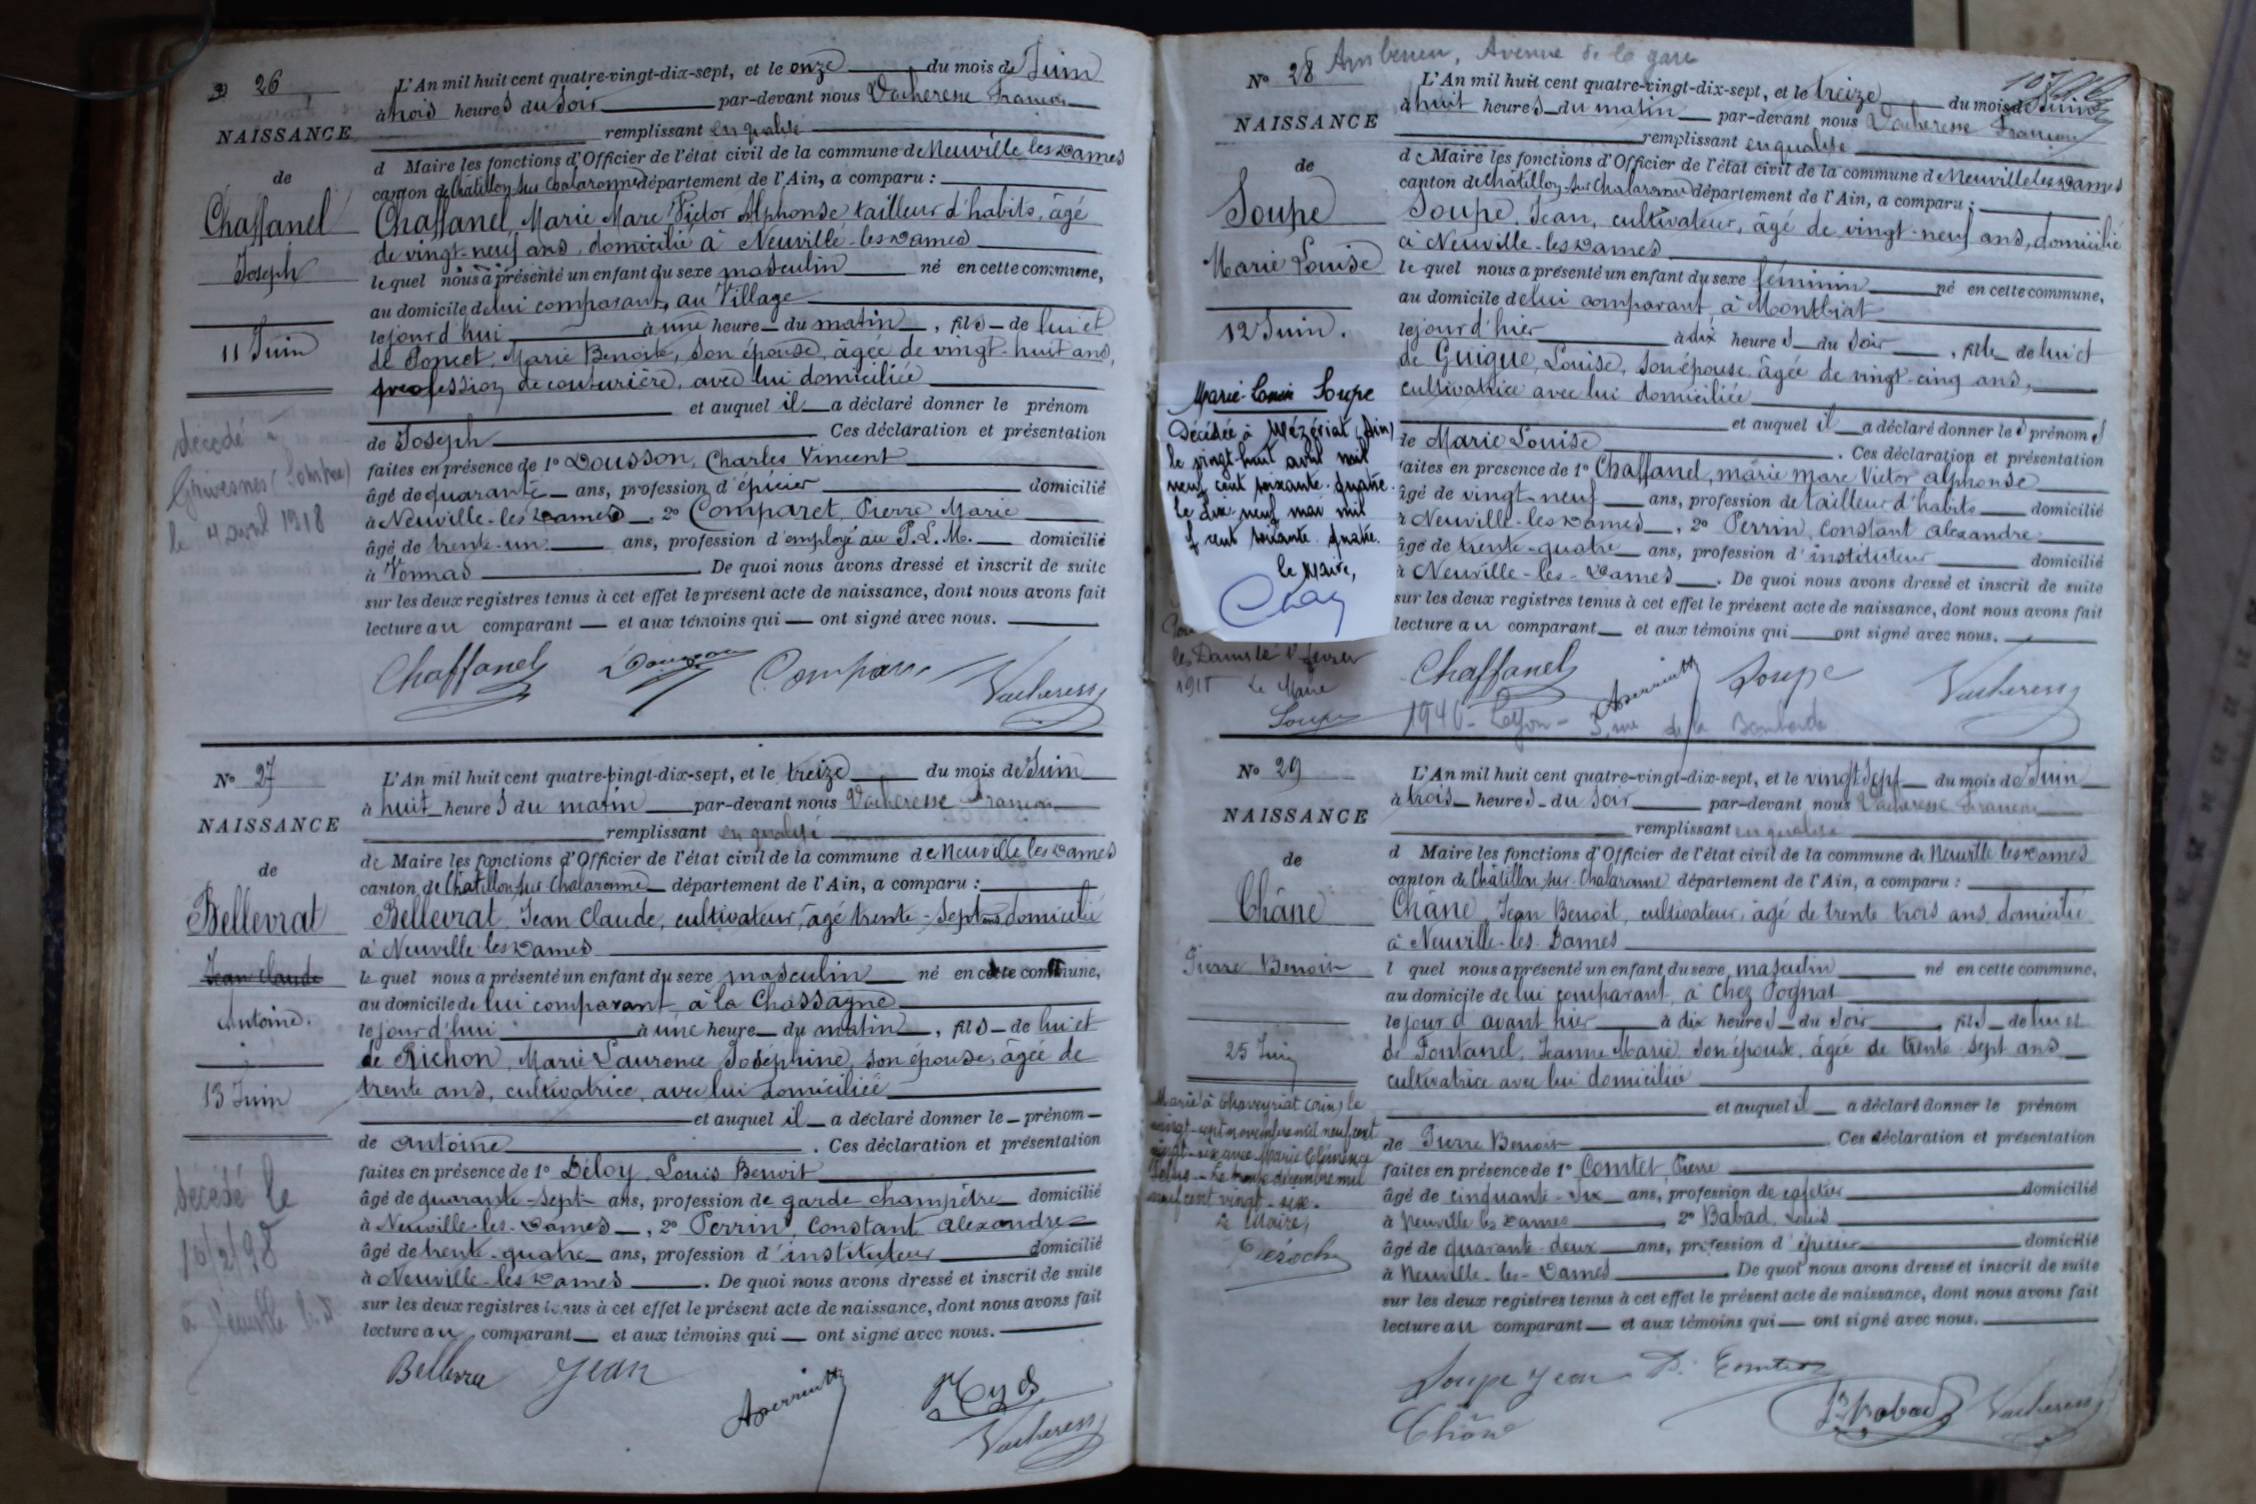 26
L'An mil huit cent quatre-vingt-dix-sept, et le onze du mois de Juin
à trois heures du soir par-devant nous Vacheresse François
NAISSANCE
remplissant en qualité
d Maire les fonctions d'Officier de l'état civil de la commune de Neuville les Dames
de
canton de Châtillon sur Chalaronne département de l'Ain, a comparu :
Chaffanel
Chaffanel, Marie Marc Victor Alphonse tailleur d'habits, âgé
de vingt-neuf ans, domicilié à Neuville-les-Dames
Joseph
lequel nous a présenté un enfant du sexe masculin né en cette commune,
au domicile de lui comparant, au Village
11 Juin
le jourd'hui à une heure du matin, fils de lui et
de Poncet, Marie Benoite, son épouse, âgée de vingt-huit ans,
profession de couturière, avec lui domiciliée
et auquel il a déclaré donner le prénom
décédé à
de Joseph Ces déclaration et présentation
Grivesnes (Somme)
faites en présence de 1° Dousson, Charles Vincent
âgé de quarante ans, profession d'épicier domicilié
le 4 avril 1918
à Neuville-les-Dames, 2° Comparet, Pierre Marie
âgé de trente-un ans, profession d'employé au P.L.M. domicilié
à Vonnas. De quoi nous avons dressé et inscrit de suite
sur les deux registres tenus à cet effet le présent acte de naissance, dont nous avons fait
lecture au comparant et aux témoins qui ont signé avec nous.
Chaffanel Dousson Comparet Vacheresse
N° 27
L'An mil huit cent quatre-vingt-dix-sept, et le treize du mois de Juin
à huit heures du matin par-devant nous Vacheresse François
NAISSANCE
remplissant en qualité
de Maire les fonctions d'Officier de l'état civil de la commune de Neuville les Dames
de
canton de Châtillon sur Chalaronne département de l'Ain, a comparu :
Bellevrat
Bellevrat, Jean Claude, cultivateur, âgé trente-sept ans, domicilié
à Neuville-les-Dames
Jean Claude
lequel nous a présenté un enfant du sexe masculin né en cette commune,
au domicile de lui comparant à la Chassagne
Antoine.
le jourd'hui à une heure du matin, fils de lui et
de Richon, Marie Laurence Joséphine, son épouse, âgée de
13 Juin
trente ans, cultivatrice, avec lui domiciliée
et auquel il a déclaré donner le prénom
de Antoine. Ces déclaration et présentation
faites en présence de 1° Déloy, Louis Benoit
décédé le
âgé de quarante-sept ans, profession de garde champêtre domicilié
à Neuville-les-Dames, 2° Perrin, Constant Alexandre
16/2/98
âgé de trente-quatre ans, profession d'instituteur domicilié
à Neuville-les-Dames. De quoi nous avons dressé et inscrit de suite
à Neuville l. D
sur les deux registres tenus à cet effet le présent acte de naissance, dont nous avons fait
lecture au comparant et aux témoins qui ont signé avec nous.
Bellevra Jean
Vacheresse
Ambérieu, Avenue de la gare
N° 28
L'An mil huit cent quatre-vingt-dix-sept, et le treize du mois de Juin
à huit heures du matin par-devant nous Vacheresse François
NAISSANCE
remplissant en qualité
de Maire les fonctions d'Officier de l'état civil de la commune de Neuville les Dames
de
canton de Châtillon sur Chalaronne département de l'Ain, a comparu :
Soupe
Soupe, Jean, cultivateur, âgé de vingt-neuf ans, domicilié
à Neuville-les-Dames
Marie Louise
lequel nous a présenté un enfant du sexe féminin né en cette commune,
au domicile de lui comparant, à Montbriat
12 Juin.
le jour d'hier à dix heures du soir, fille de lui et
de Guigue, Louise, son épouse âgée de vingt-cinq ans,
cultivatrice avec lui domiciliée
et auquel il a déclaré donner les prénoms
de Marie Louise. Ces déclaration et présentation
faites en présence de 1° Chaffanel, marie marc Victor alphonse
âgé de vingt-neuf ans, profession de tailleur d'habits domicilié
à Neuville-les-Dames, 2° Perrin, constant alexandre
âgé de trente-quatre ans, profession d'instituteur domicilié
à Neuville-les-Dames. De quoi nous avons dressé et inscrit de suite
sur les deux registres tenus à cet effet le présent acte de naissance, dont nous avons fait
lecture au comparant et aux témoins qui ont signé avec nous.
Marie-Louise Soupe
Décédée à Mézériat (Ain)
le vingt-huit avril mil
neuf cent soixante-quatre.
le dix-neuf mai mil
f cent soixante-quatre.
le Maire,
les Dames le février
1915 Le Maire
Soupe
Chaffanel Soupe Vacheresse
1940 - Lyon - 3, rue de la Bombarde
N° 29
L'An mil huit cent quatre-vingt-dix-sept, et le vingt sept du mois de Juin
à trois heures du soir par-devant nous Vacheresse François
NAISSANCE
remplissant en qualité
d Maire les fonctions d'Officier de l'état civil de la commune de Neuville les Dames
de
canton de Châtillon sur Chalaronne département de l'Ain, a comparu :
Châne
Châne, Jean Benoit, cultivateur, âgé de trente trois ans, domicilié
à Neuville-les-Dames
Pierre Benoit
l quel nous a présenté un enfant du sexe masculin né en cette commune,
au domicile de lui comparant, à Chez Pognat
le jour d'avant hier à dix heures du soir, fils de lui et
25 Juin
de Fontanel, Jeanne Marie, son épouse, âgée de trente-sept ans
cultivatrice avec lui domiciliée
et auquel il a déclaré donner le prénom
de Pierre Benoit. Ces déclaration et présentation
faites en présence de 1° Comtet Pierre
âgé de cinquante-six ans, profession de cafetier domicilié
à Neuville les Dames, 2° Babad, Louis
âgé de quarante-deux ans, profession d'épicier domicilié
à Neuville-les-Dames. De quoi nous avons dressé et inscrit de suite
sur les deux registres tenus à cet effet le présent acte de naissance, dont nous avons fait
lecture au comparant et aux témoins qui ont signé avec nous.
Marié à Chaveyriat (Ain) le
vingt-sept novembre mil neuf cent
vingt-six avec Marie Clémence
Le trente décembre mil
neuf cent vingt-six.
Le Maire,
Soupe Jean Comtet
Châne Babad Vacheresse